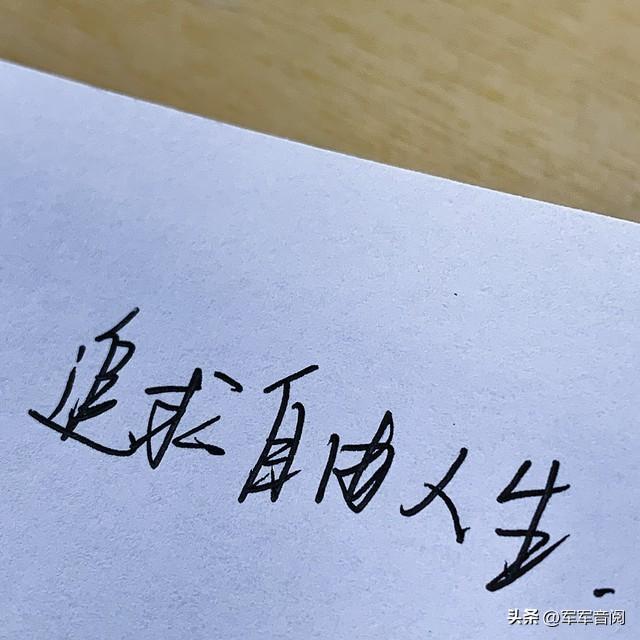 追求自由人生.
头条 @军军音阅